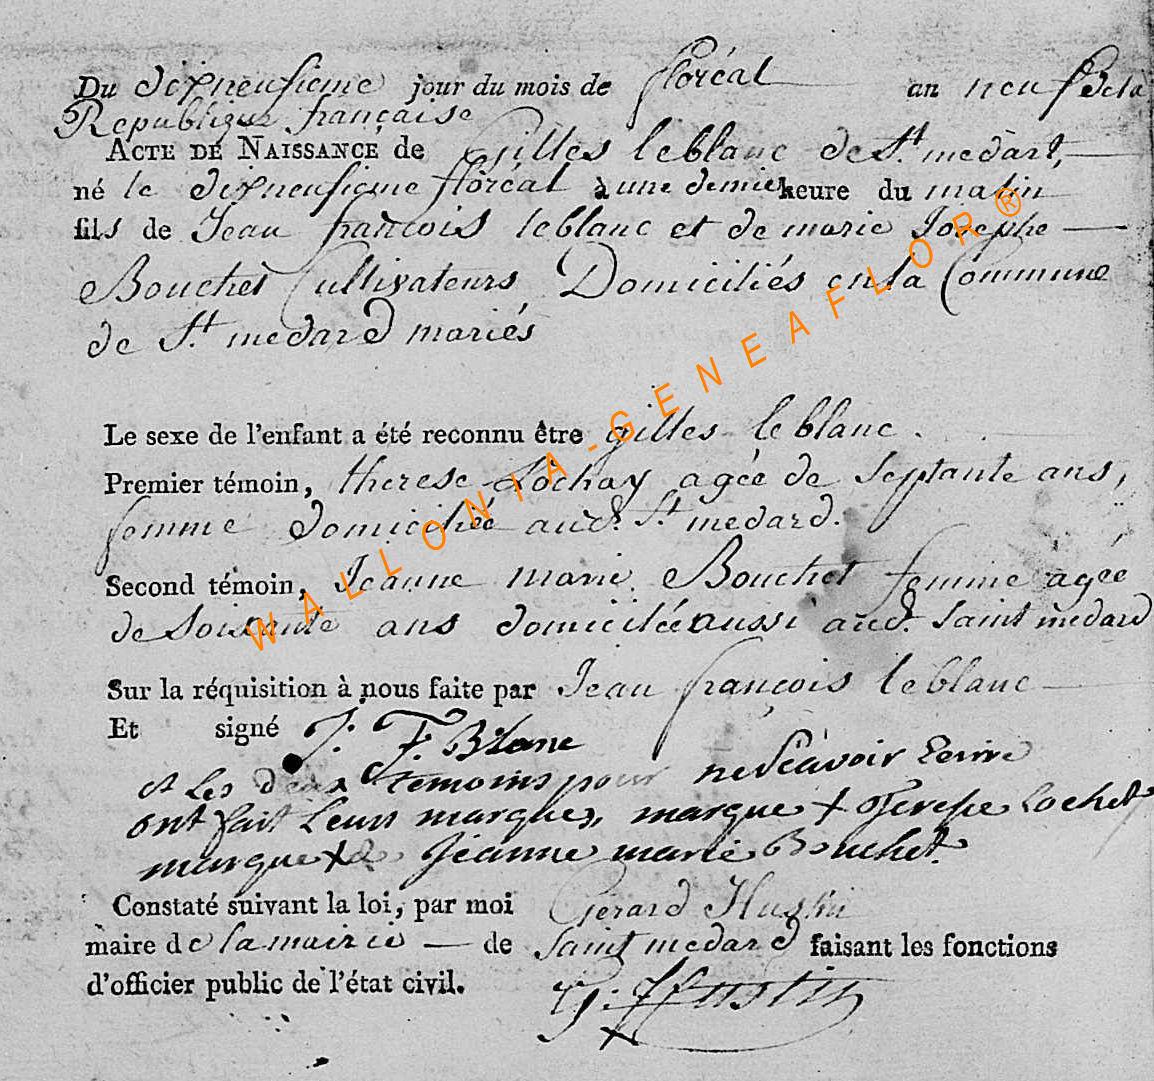 Du dixneufieme jour du mois de floréal an neuf de la
Republique française
ACTE DE NAISSANCE de Gilles leblanc de St. medart,
né le dixneufieme floréal à une demie heure du matin
fils de Jean françois leblanc et de marie Josephe
Bouchet Cultivateurs Domiciliés en la Commune
de St. medard mariés
Le sexe de l'enfant a été reconnu être gilles leblanc.
Premier témoin, therese Lochay agée de Septante ans,
femme domiciliée aud. St medard.
Second témoin, Jeanne marie Bouchet femme agée
de Soixante ans domiciliée aussi aud. Saint medard
Sur la réquisition à nous faite par Jean françois leblanc
Et signé J. F Blanc
et Les deux temoins pour ne Sçavoir Ecrire
ont fait Leurs marques, marque + Therese Lochet
marque + de Jeanne marie Bouchet.
Constaté suivant la loi, par moi Gerard Hustin
maire de la mairie de Saint medard faisant les fonctions
d'officier public de l'état civil. G. Hustin
WALLONIA-GENEAFLOR®